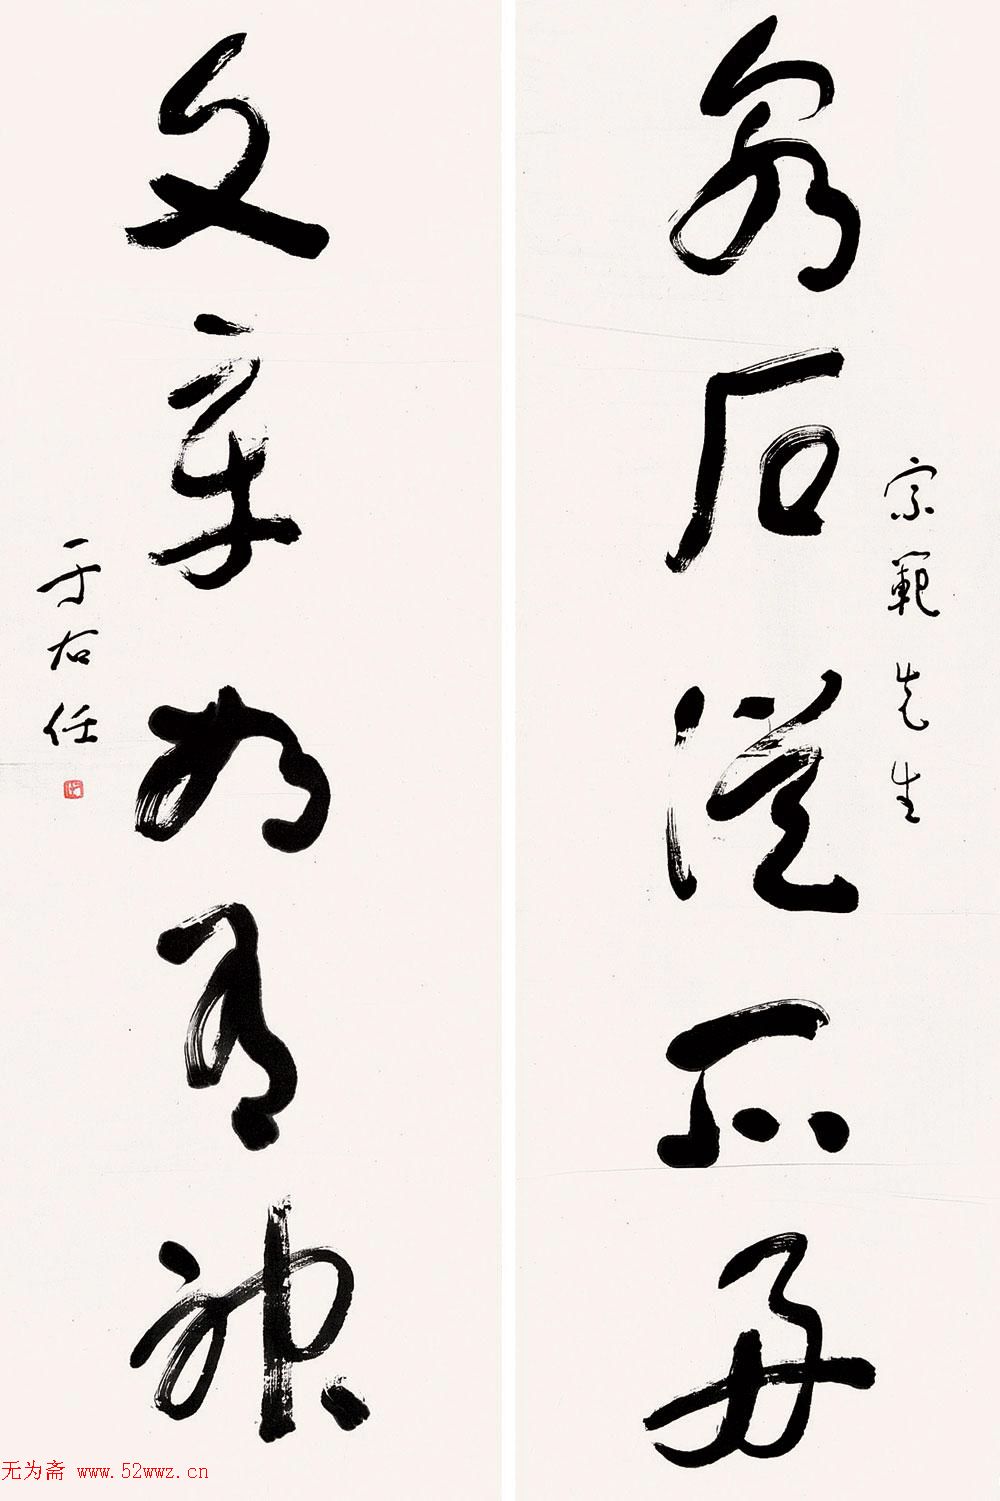 石從不
宗範先生
文章如有神
于右任
无为斋 www.52wwz.cn